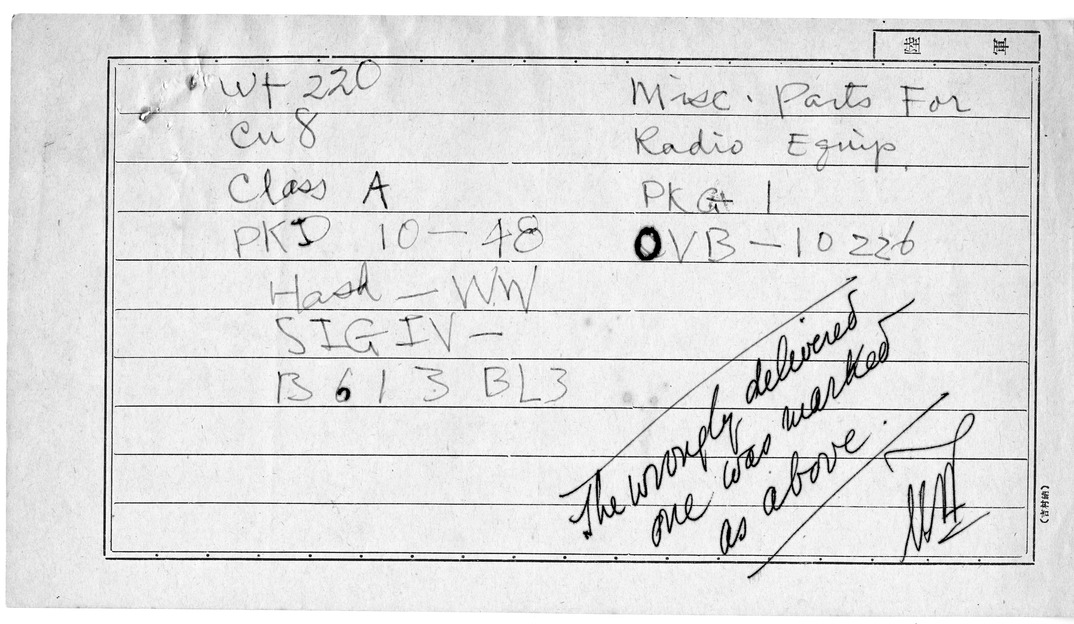 陸軍
Wt 220
Cu 8
Class A
PKD 10-48
Hash - WW
SIG IV -
B 613 BL3
Misc. Parts For
Radio Equip.
PKG 1
OVB-10226
The wrongly delivered
one was marked
as above.